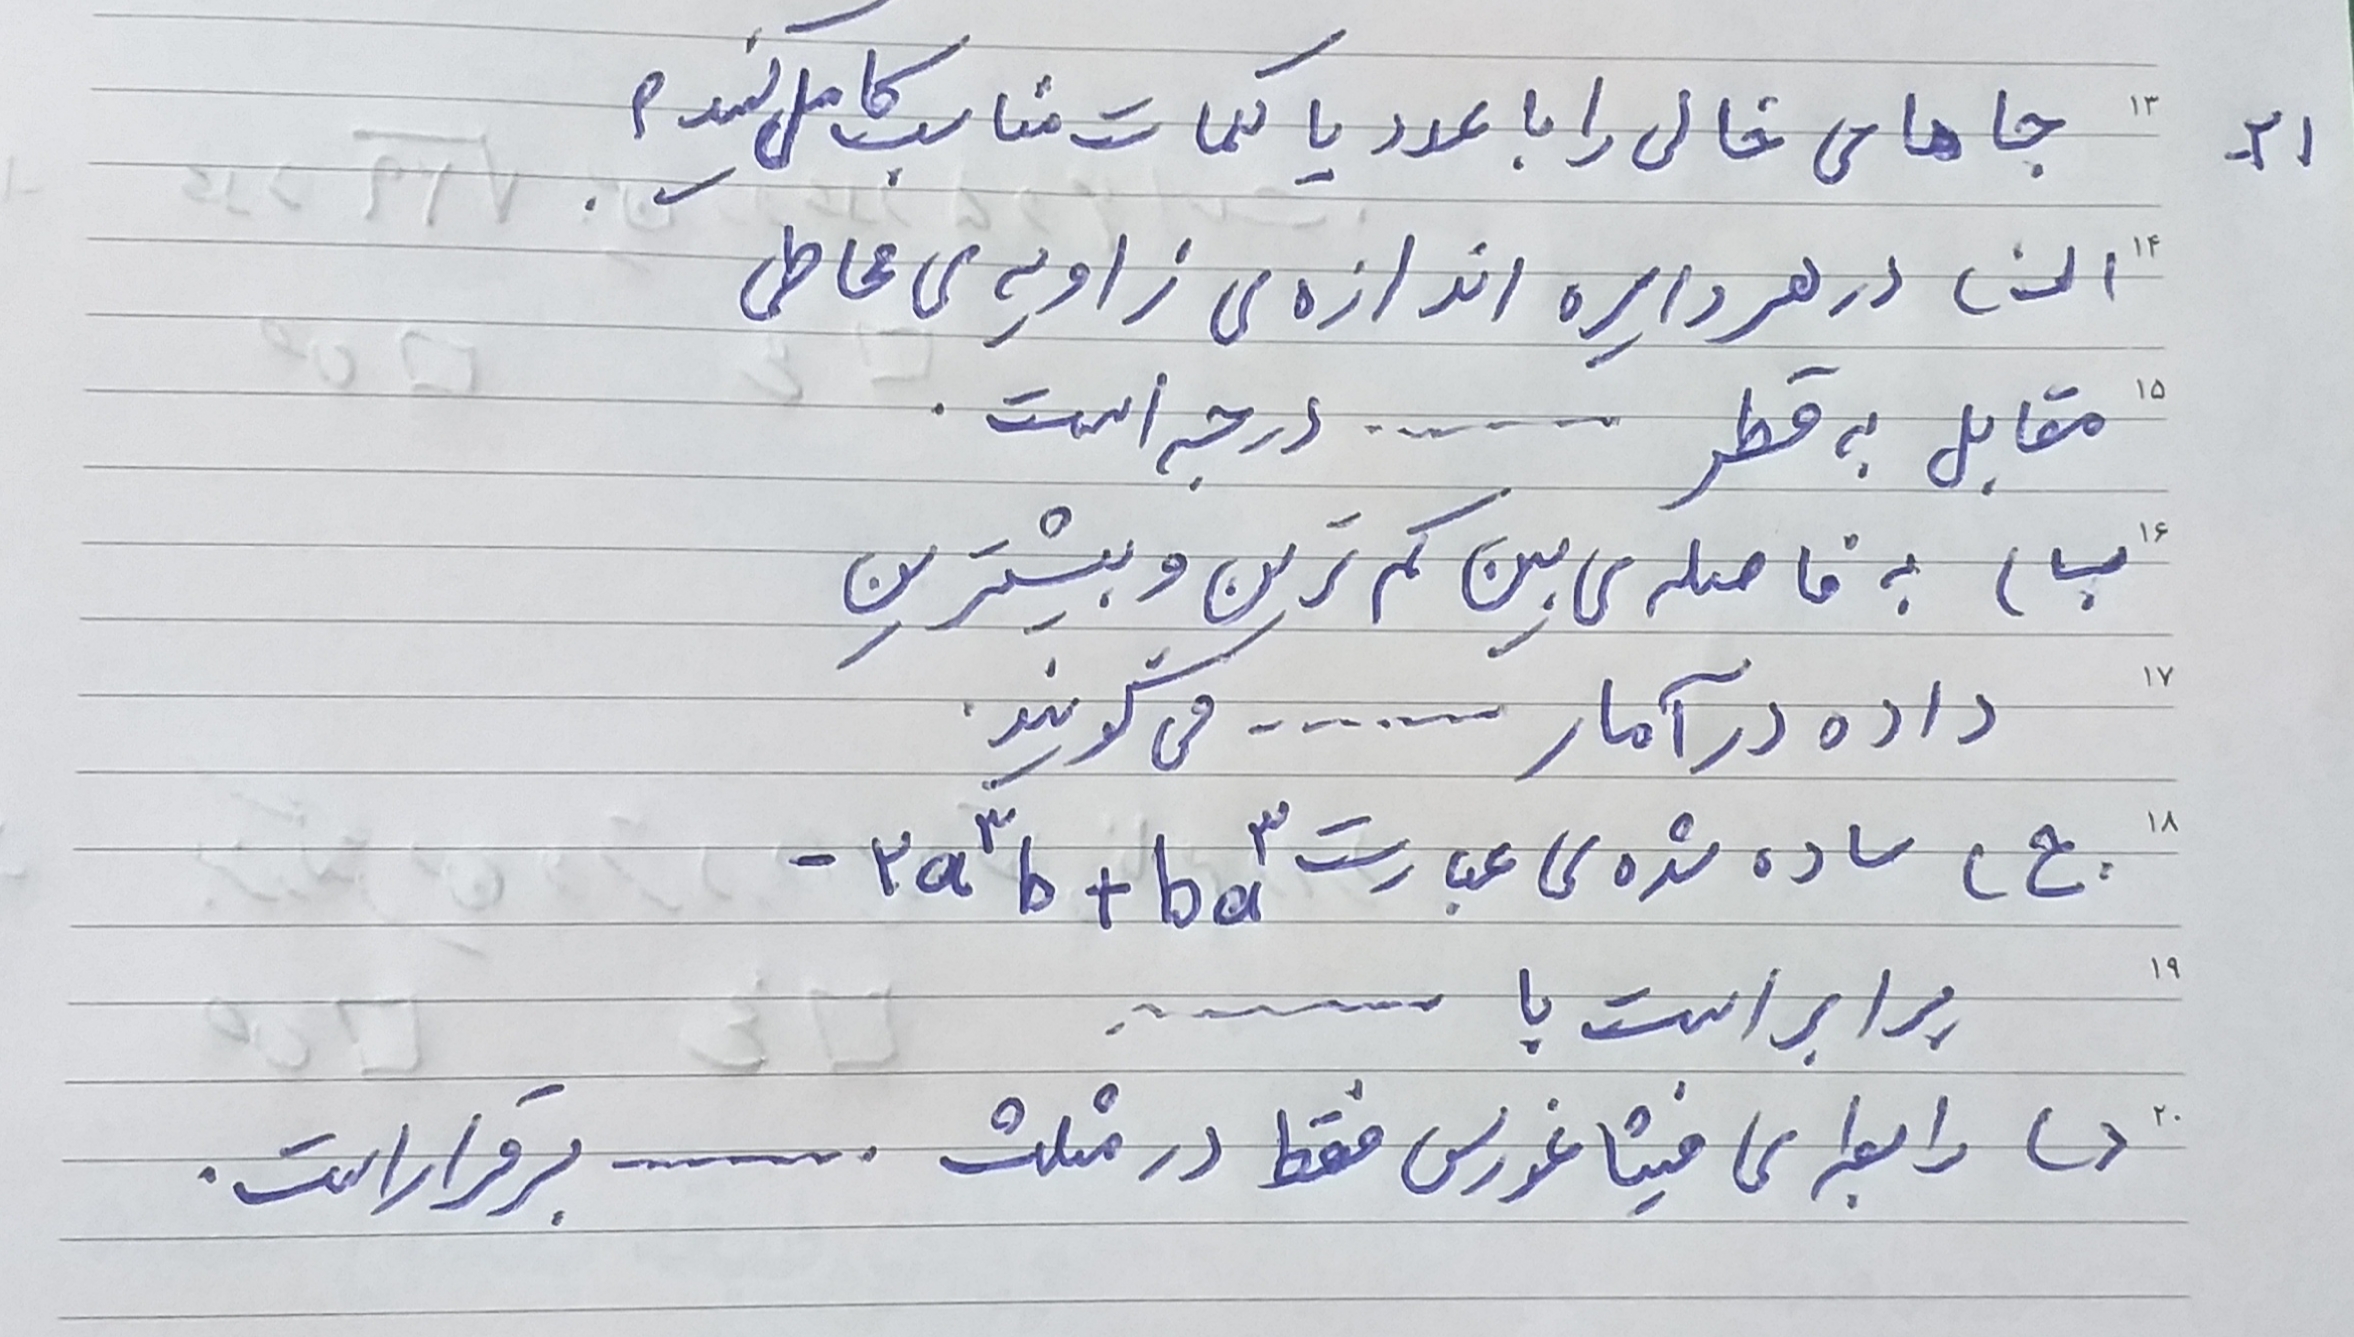 ۱۳ جاهای خالی را با عدد یا کلمات مناسب کامل کنید؟
۱۴ الف) در هر دایره اندازه ی زاویه ی محاطی
۱۵ مقابل به قطر ........ درجه است.
۱۶ ب) به فاصله ی بین کم ترین و بیشترین
۱۷ داده در آمار ........ می گویند.
۱۸ ج) ساده شده ی عبارت -۲a³b + ba³
۱۹ برابر است با ........
۲۰ د) رابطه ی فیثاغورس فقط در مثلث ........ برقرار است.